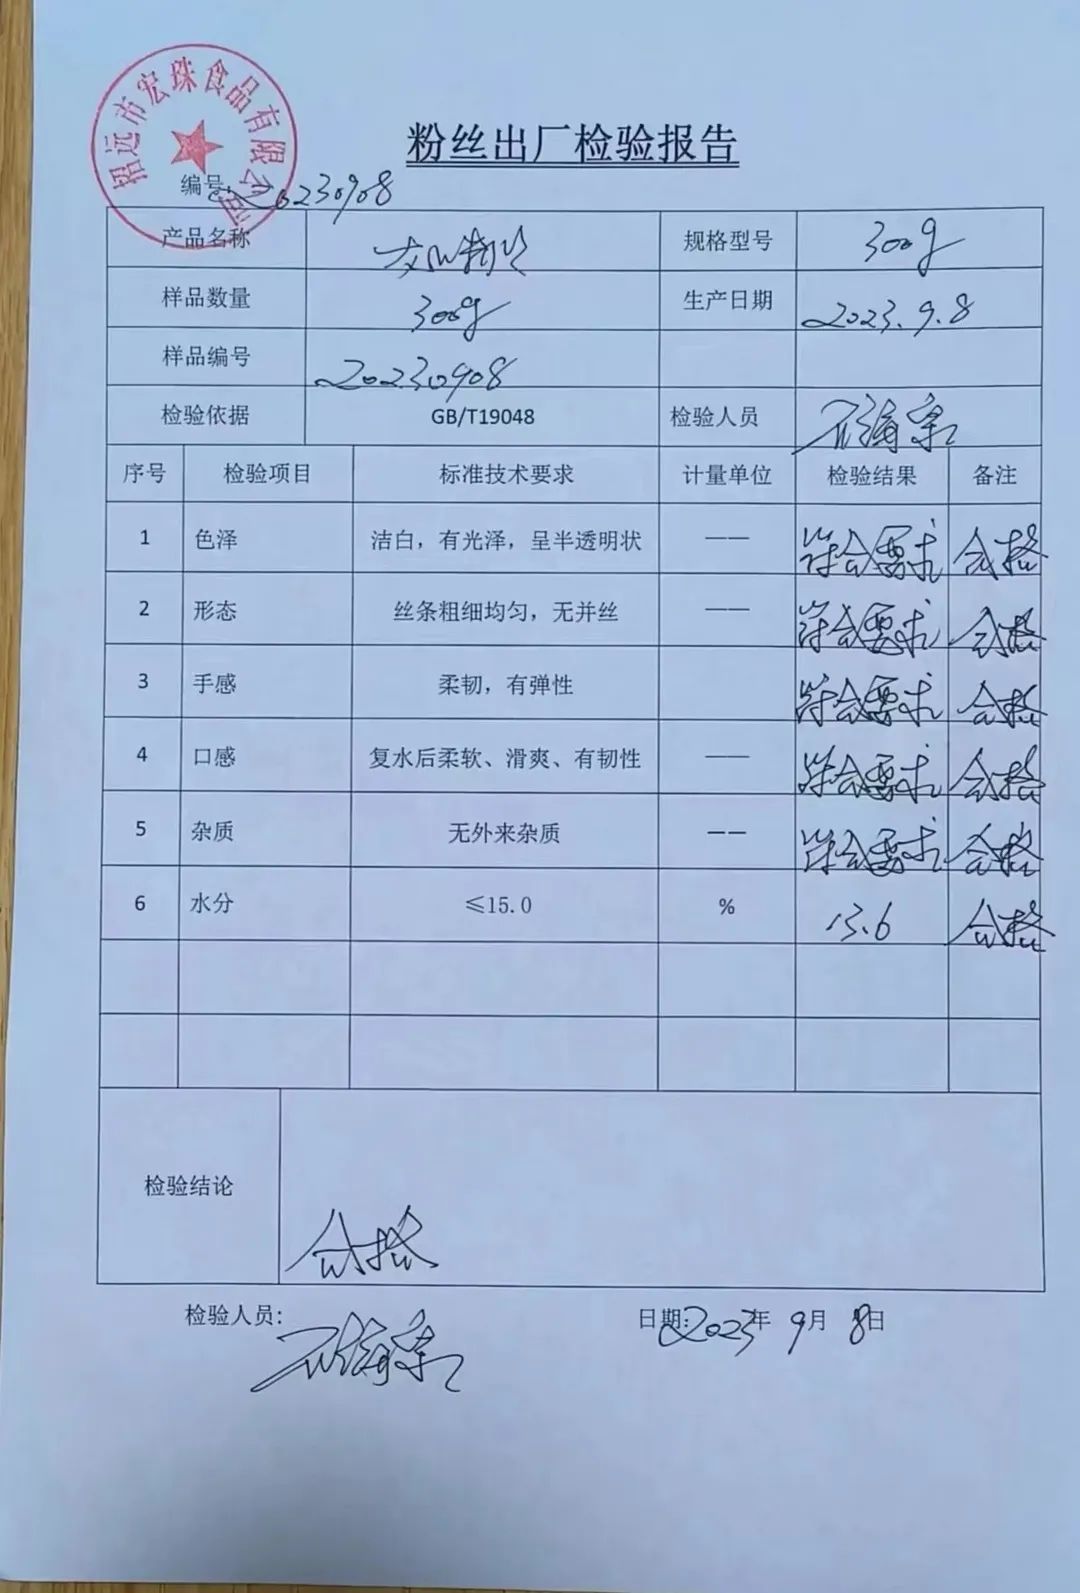 招远市宏珠食品有限公司
粉丝出厂检验报告
编号: 20230908
产品名称 规格型号 300g
样品数量 300g 生产日期 2023.9.8
样品编号 20230908
检验依据 GB/T19048 检验人员
序号 检验项目 标准技术要求 计量单位 检验结果 备注
1 色泽 洁白，有光泽，呈半透明状 —— 符合要求 合格
2 形态 丝条粗细均匀，无并丝 —— 符合要求 合格
3 手感 柔韧，有弹性 符合要求 合格
4 口感 复水后柔软、滑爽、有韧性 —— 符合要求 合格
5 杂质 无外来杂质 —— 符合要求 合格
6 水分 ≤15.0 % 13.6 合格
检验结论 合格
检验人员: 日期: 2023年 9月 8日